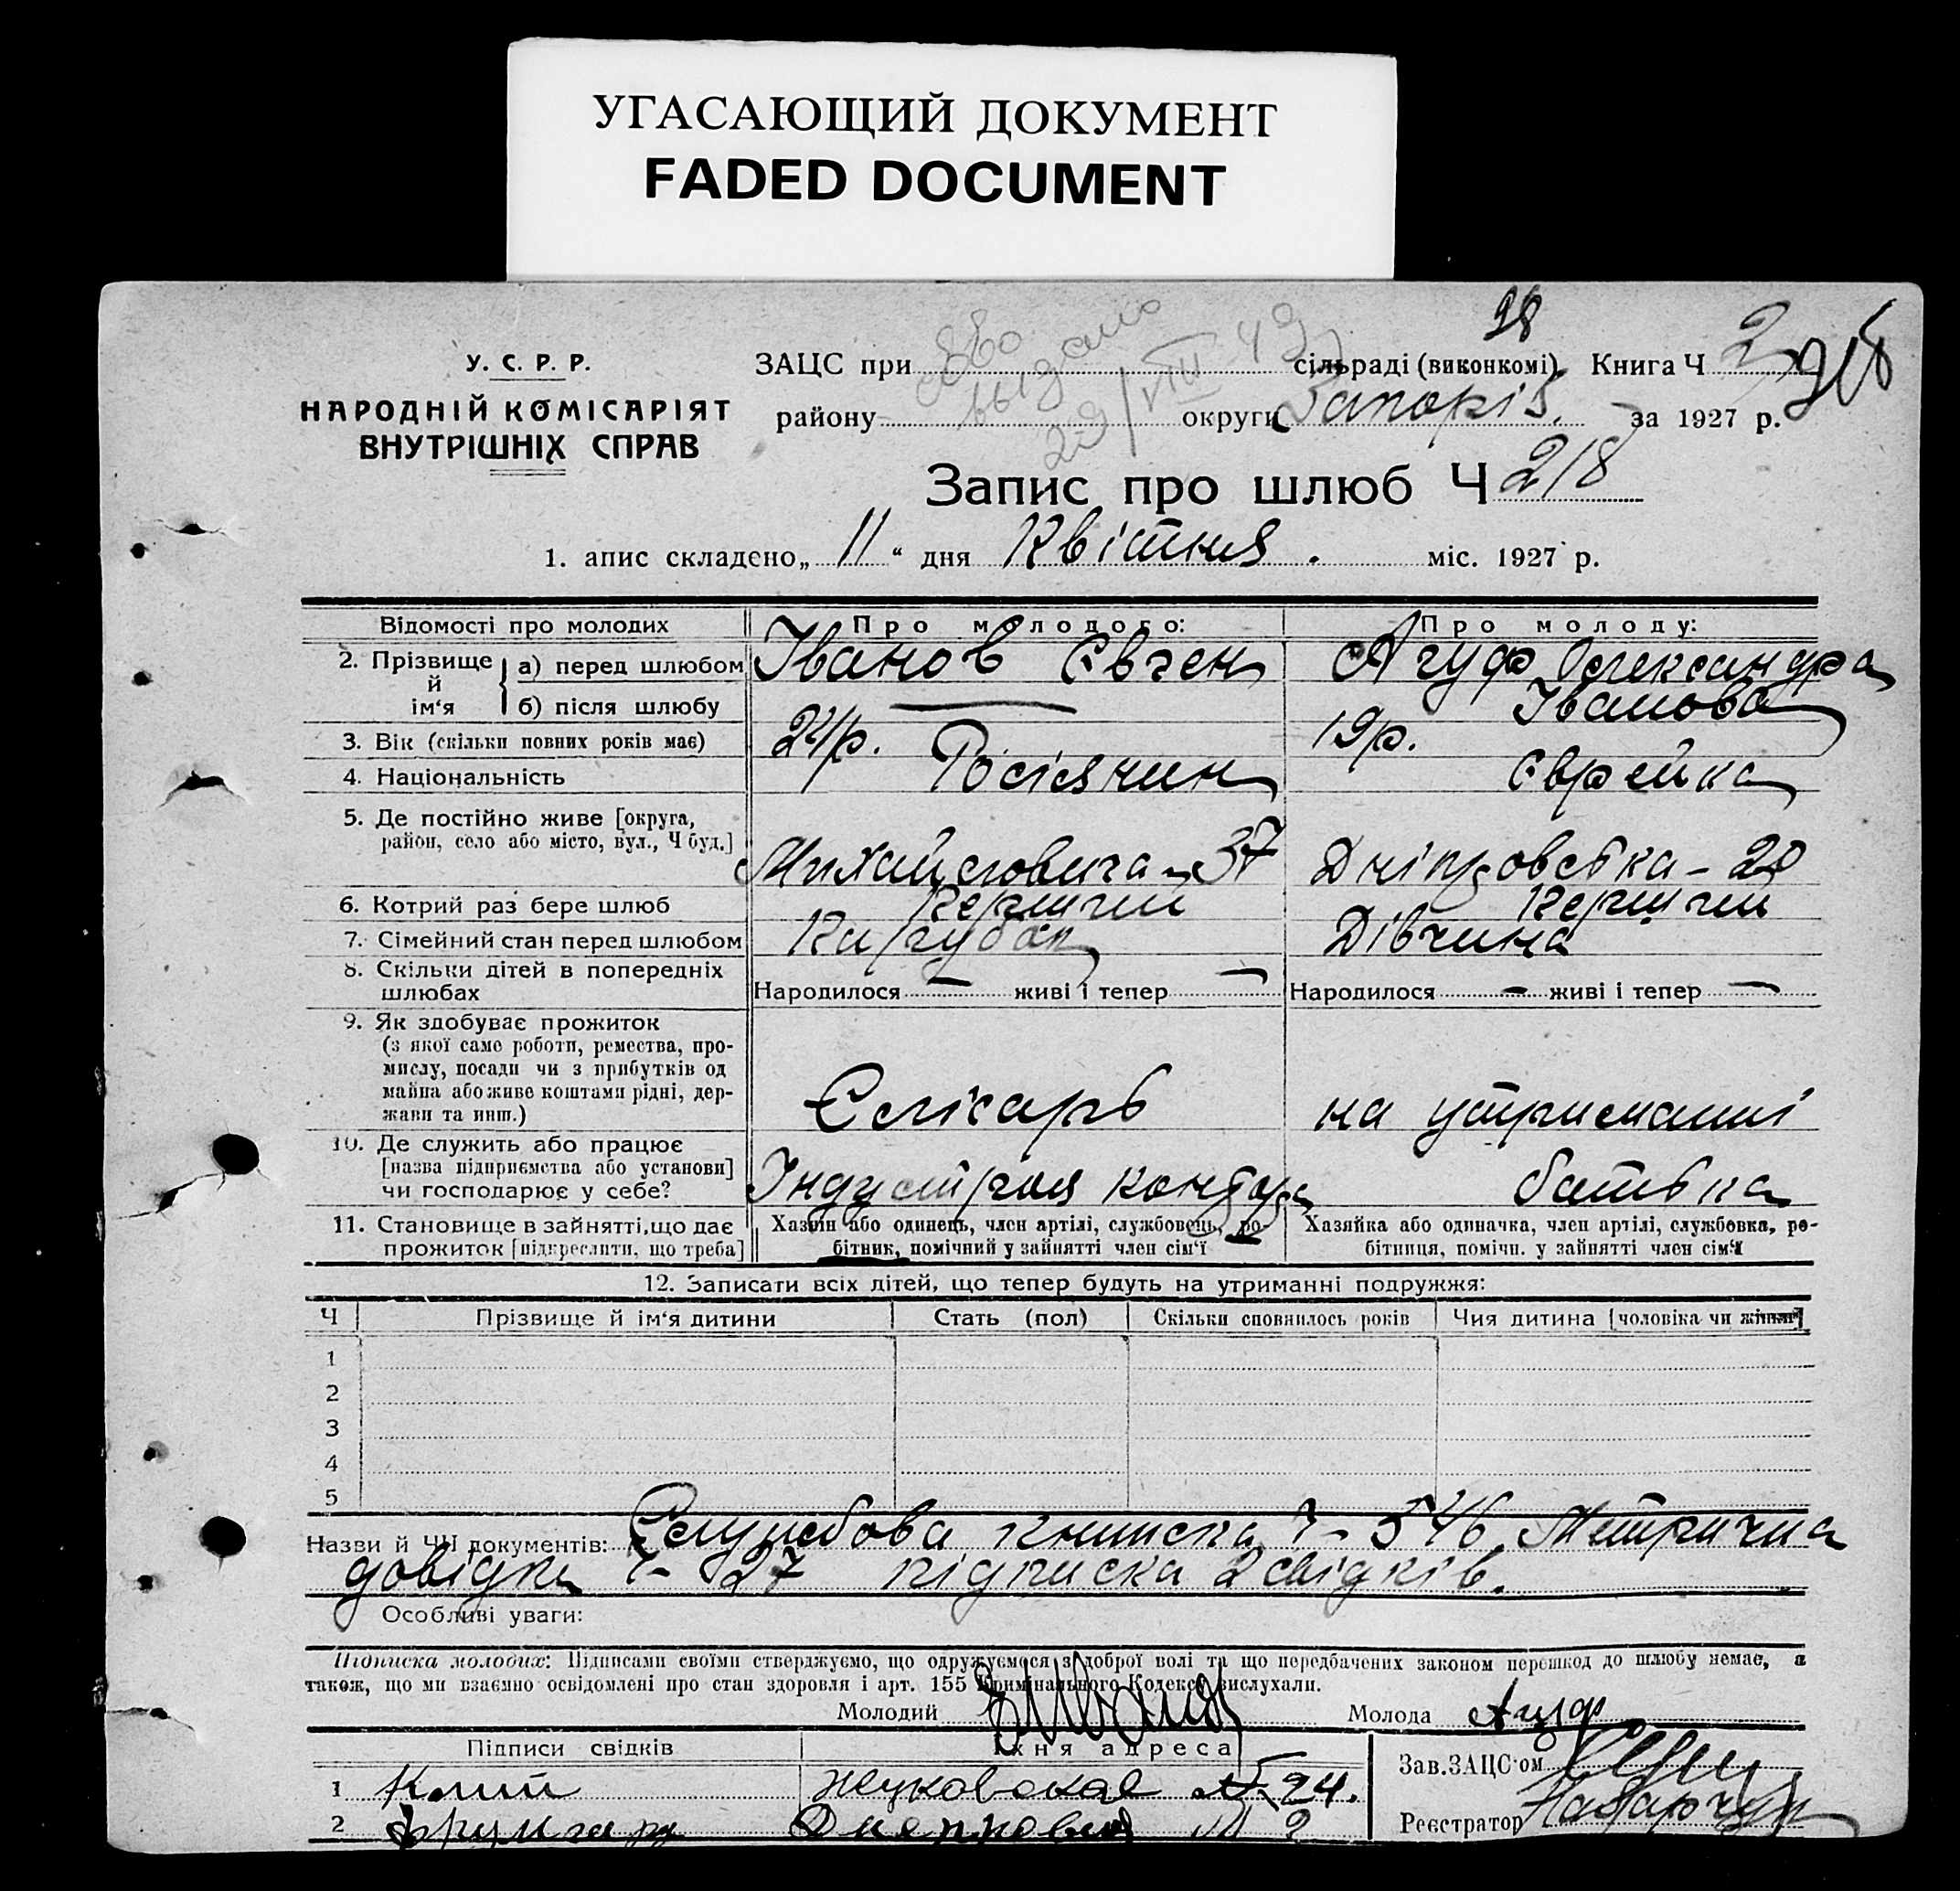 УГАСАЮЩИЙ ДОКУМЕНТ
FADED DOCUMENT
98
У. С. Р. Р.
НАРОДНІЙ КОМІСАРІЯТ
ВНУТРІШНІХ СПРАВ
ЗАЦС при сільраді (виконкомі) Книга Ч 2
выдано
29/VIII 49
району округи Запоріз. за 1927 р.
Запис про шлюб Ч 218
1. апис складено „11“ дня Квітня. міс. 1927 р.
Відомості про молодих Про молодого: Про молоду:
2. Прізвище й ім‘я а) перед шлюбом Іванов Євген Агуф Олександра
б) після шлюбу — Іванова
3. Вік (скільки повних років має) 24р. 19р.
4. Національність Росіянин Єврейка
5. Де постійно живе [округа,
район, село або місто, вул., Ч буд.] Михайловича - 37 Дніпровська - 20
6. Котрий раз бере шлюб Перший Перший
7. Сімейний стан перед шлюбом Парубок Дівчина
8. Скільки дітей в попередніх
шлюбах Народилося — живі і тепер — Народилося — живі і тепер —
9. Як здобуває прожиток
(з якої саме роботи, ремества, про-
мислу, посади чи з прибутків од
майна або живе коштами рідні, дер-
жави та инш.) Слісарь на утриманні
10. Де служить або працює
[назва підприємства або установи]
чи господарює у себе? контора батька
11. Становище в зайнятті, що дає
прожиток [підкреслити, що треба]
Хазяін або одинець, член артілі, службовець, ро-
бітник, помічний у зайнятті член сім‘ї
Хазяйка або одиначка, член артілі, службовка, ро-
бітниця, помічн. у зайнятті член сім‘ї
12. Записати всіх дітей, що тепер будуть на утриманні подружжя:
Ч Прізвище й ім‘я дитини Стать (пол) Скільки сповнилось років Чия дитина [чоловіка чи жінки]
1
2
3
4
5
Назви й ЧЧ документів: Службова книжка Ч- 546. Метрична
довідка Ч- 27 підписка 2 свідків.
Особливі уваги:
Підписка молодих: Підписами своїми стверджуємо, що одружуємося з доброї волі та що передбачених законом перешкод до шлюбу немає, а
також, що ми взаємно освідомлені про стан здоровля і арт. 155 Кримінального Кодексу вислухали.
Молодий ЕИванов Молода Агуф
Підписи свідків Їхня адреса Зав. ЗАЦС‘ом
1 Клий Жуковская № 24.
2 Днепровская № 2 Реєстратор